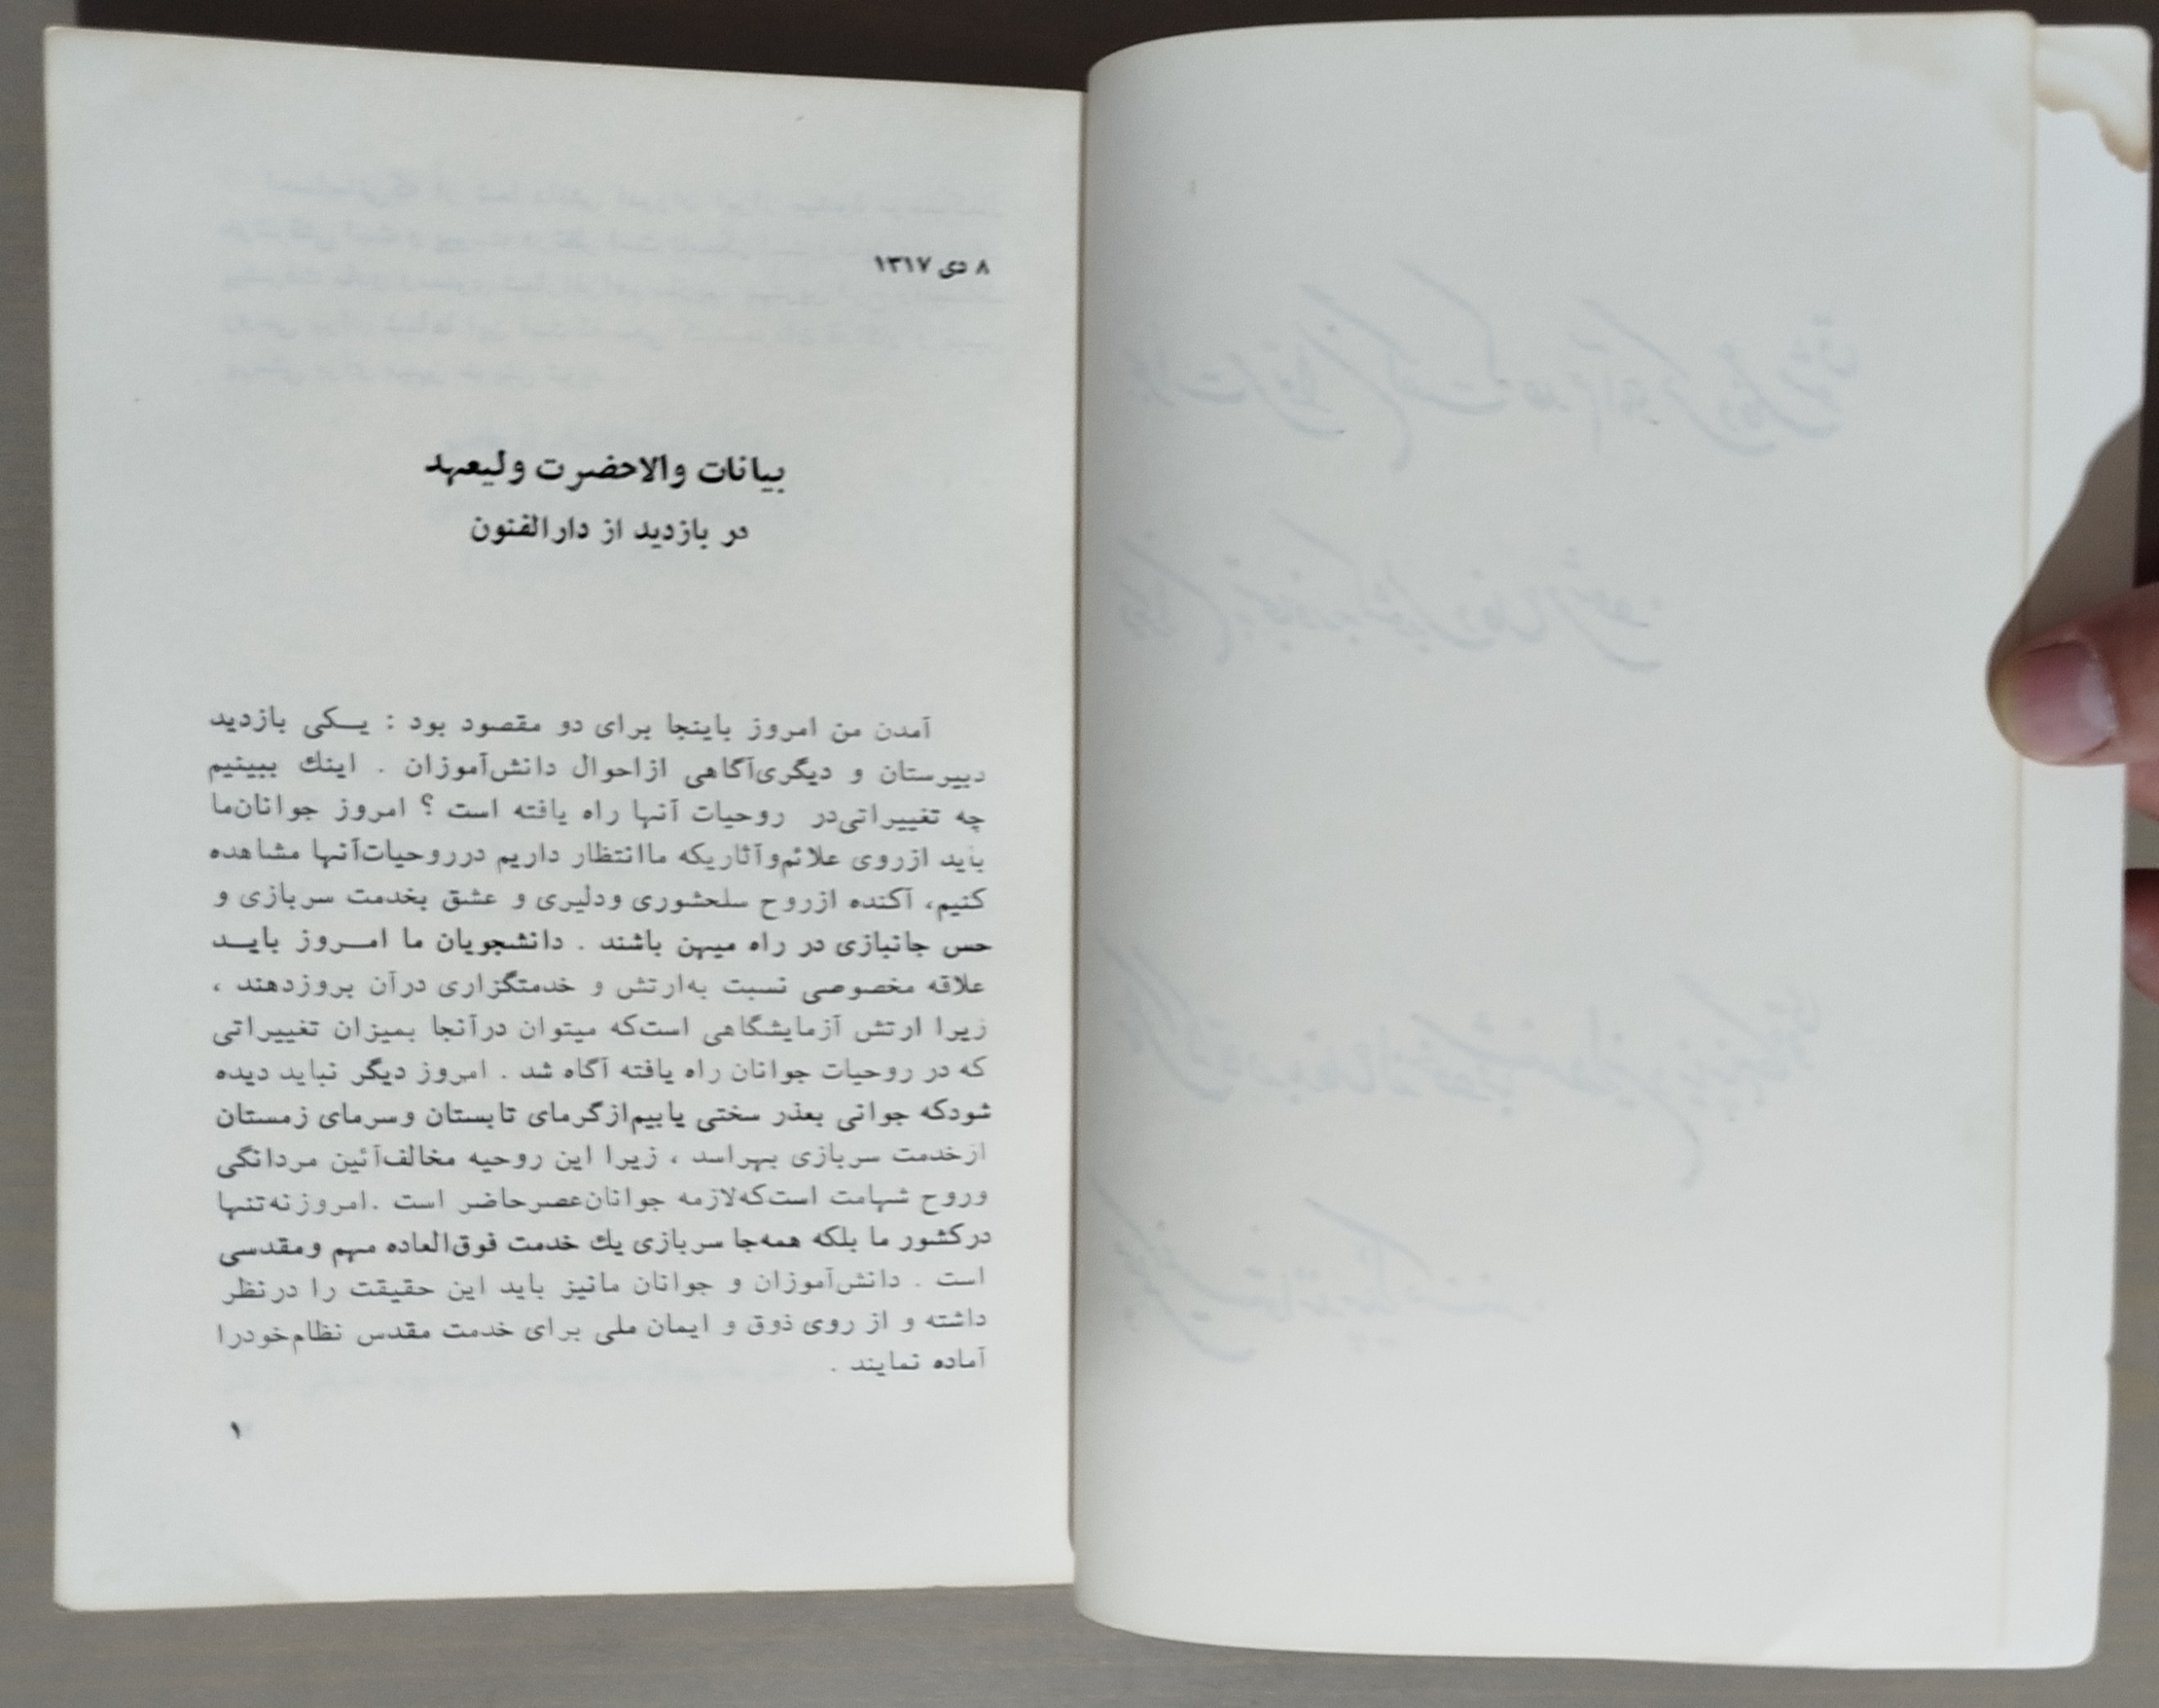 ۸ دی ۱۳۱۷
بیانات والاحضرت ولیعهد
در بازدید از دارالفنون
آمدن من امروز باینجا برای دو مقصود بود : یـکی بازدید
دبیرستان و دیگری‌آگاهی ازاحوال دانش‌آموزان . اینك ببینیم
چه تغییراتی‌در روحیات آنها راه یافته است ؟ امروز جوانان‌ما
باید ازروی علائم‌وآثاریکه ماانتظار داریم درروحیات‌آنها مشاهده
کنیم، آکنده ازروح سلحشوری ودلیری و عشق بخدمت سربازی و
حس جانبازی در راه میهن باشند . دانشجویان ما امـروز بایـد
علاقه مخصوصی نسبت به‌ارتش و خدمتگزاری درآن بروزدهند ،
زیرا ارتش آزمایشگاهی است‌که میتوان درآنجا بمیزان تغییراتی
که در روحیات جوانان راه یافته آگاه شد . امروز دیگر نباید دیده
شودکه جوانی بعذر سختی یابیم‌ازگرمای تابستان وسرمای زمستان
ازخدمت سربازی بهراسد ، زیرا این روحیه مخالف‌آئین مردانگی
وروح شهامت است‌که‌لازمه جوانان‌عصرحاضر است .امروزنه‌تنها
درکشور ما بلکه همه‌جا سربازی یك خدمت فوق‌العاده مهم ومقدسی
است . دانش‌آموزان و جوانان مانیز باید این حقیقت را درنظر
داشته و از روی ذوق و ایمان ملی برای خدمت مقدس نظام‌خودرا
آماده نمایند .
۱